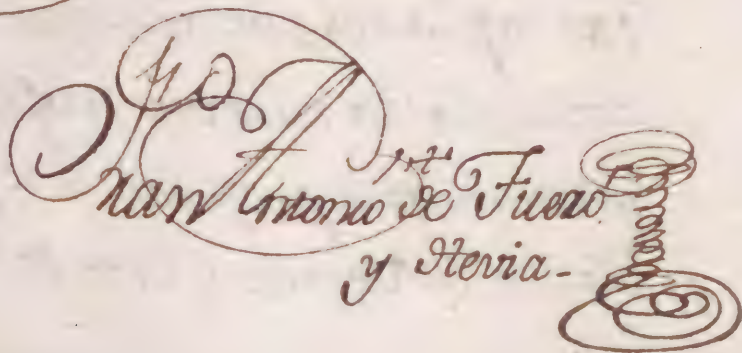 Juan Antonio de Fuero
y Hevia.